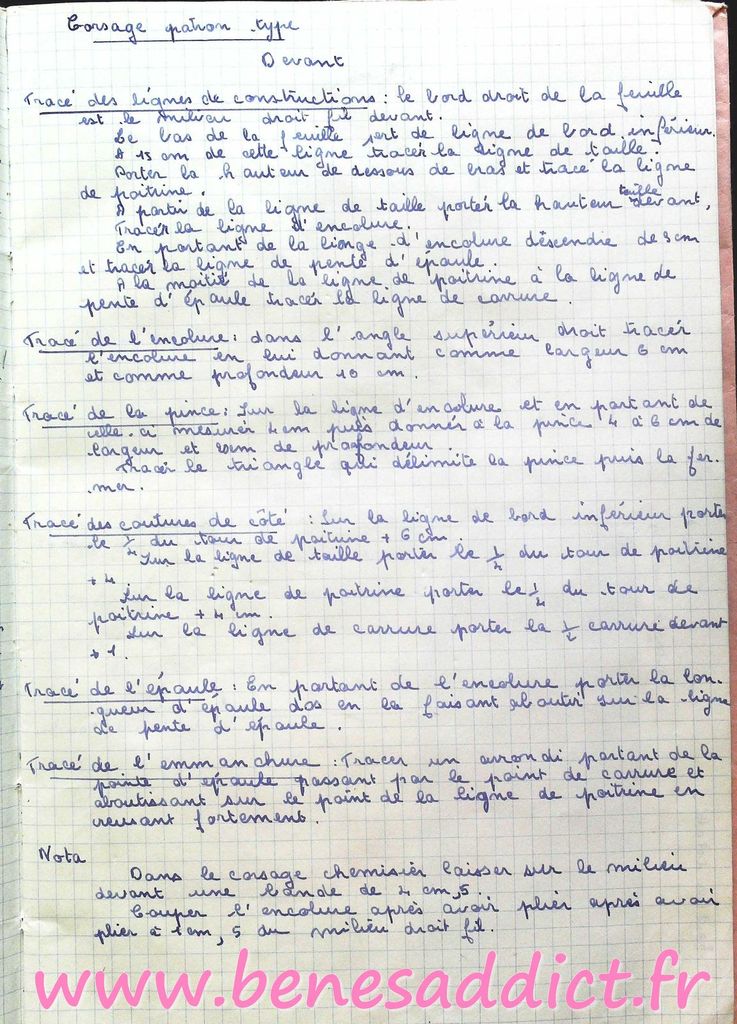 Corsage patron type
Devant
Tracé des lignes de constructions : le bord droit de la feuille
est le milieu droit fil devant.
Le bas de la feuille sert de ligne de bord inférieur.
A 15 cm de cette ligne tracer la ligne de taille.
Porter la hauteur de dessous de bras et tracé la ligne
de poitrine.
A partir de la ligne de taille porter la hauteur taille devant,
Tracer la ligne d'encolure.
En portant de la lionge d'encolure descendre de 3 cm
et tracer la ligne de pente d'épaule.
A la moitié de la ligne de poitrine à la ligne de
pente d'épaule tracer la ligne de carrure.
Tracé de l'encolure : dans l'angle supérieur droit tracer
l'encolure en lui donnant comme largeur 6 cm
et comme profondeur 10 cm.
Tracé de la pince : Sur la ligne d'encolure et en partant de
elle.ci mesurer 4 cm puis donner à la pince 4 à 6 cm de
largeur et cm de profondeur
Tracer le triangle qui délimite la pince puis la fer-
mer.
Tracé des coutures de côté : Sur la ligne de bord inférieur porter
le 1/4 du tour de poitrine + 6 cm.
Sur la ligne de taille porter le 1/4 du tour de poitrine
+ 4
Sur la ligne de poitrine porter le 1/4 du tour de
poitrine + 4 cm.
Sur la ligne de carrure porter la 1/2 carrure devant
+ 1.
Tracé de l'épaule : En partant de l'encolure porter la lon-
gueur d'épaule dos en la faisant aboutir sur la ligne
de pente d'épaule.
Tracé de l'emmanchure : Tracer un arrondi partant de la
pointe d'épaule passant par le point de carrure et
aboutissant sur le point de la ligne de poitrine en
creusant fortement.
Nota
Dans le corsage chemisier laisser sur le milieu
devant une bande de 4 cm,5.
Couper l'encolure après avoir plier après avoir
plier à 1 cm,5 du milieu droit fil.
www.benesaddict.fr